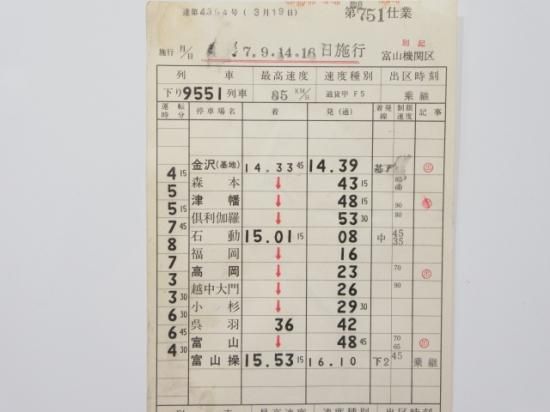 達第4364号 (3月19日)
第751仕業
施行 月/日
7.9.14.16日施行
別記
富山機関区
列車 最高速度 速度種別 出区時刻
下り9551列車 85 KM/H 通貨甲 F5 乗継
運転時分 停車場名 着 発(通) 着発線 制限速度 記事
金沢(基地) 14.33 45 14.39
4 15
森本 ↓ 43 15
5
津幡 ↓ 48 15 90
5 15
倶利伽羅 ↓ 53 30 90 80
7 45
石動 15.01 15 08 中 45 35
8
福岡 ↓ 16
7
高岡 ↓ 23 70
3
越中大門 ↓ 26 90
3 30
小杉 ↓ 29 30
6 30
呉羽 36 42
6 45
富山 ↓ 48 45 70 65
4 30
富山操 15.53 15 16.10 下2 45 乗継
列車 最高速度 速度種別 出区時刻